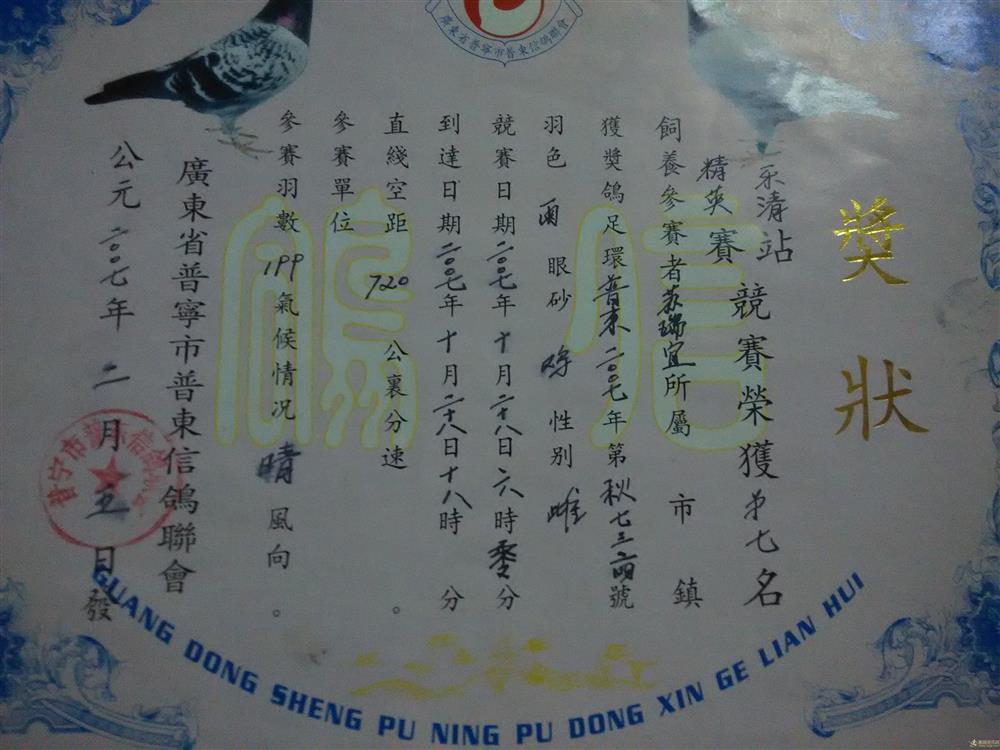 廣東省普寧市普東信鴿聯會
獎狀
乐清站
精英賽競賽榮獲第七名
飼養參賽者苏瑞宜所屬市鎮
獲獎鴿足環普东二〇〇七年第秋七三二四號
羽色雨眼砂砂性別雌
競賽日期二〇〇七年十月二十八日六時零分
到達日期二〇〇七年十月二十八日十八時分
直綫空距720公裏分速。
參賽單位
參賽羽數199氣候情況晴風向。
廣東省普寧市普東信鴿聯會
公元二〇〇七年二月五日發
信鴿
GUANG DONG SHENG PU NING PU DONG XIN GE LIAN HUI